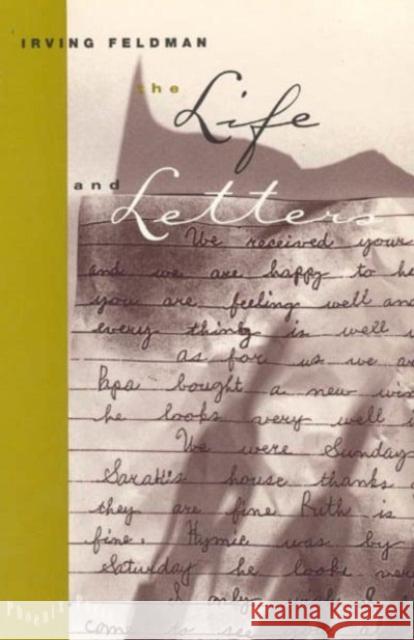 IRVING FELDMAN
the
Life
and
Letters
We received yours
and we are happy to he
you are feeling well and
every thing is well w
as for us we ar
Papa bought a new win
he looks very well i
We were Sunday
Sarah's house thanks
they are fine Ruth is
fine. Hymie was by
Saturday he looks ver
I only wish I
come to see you
Phoenix Poets